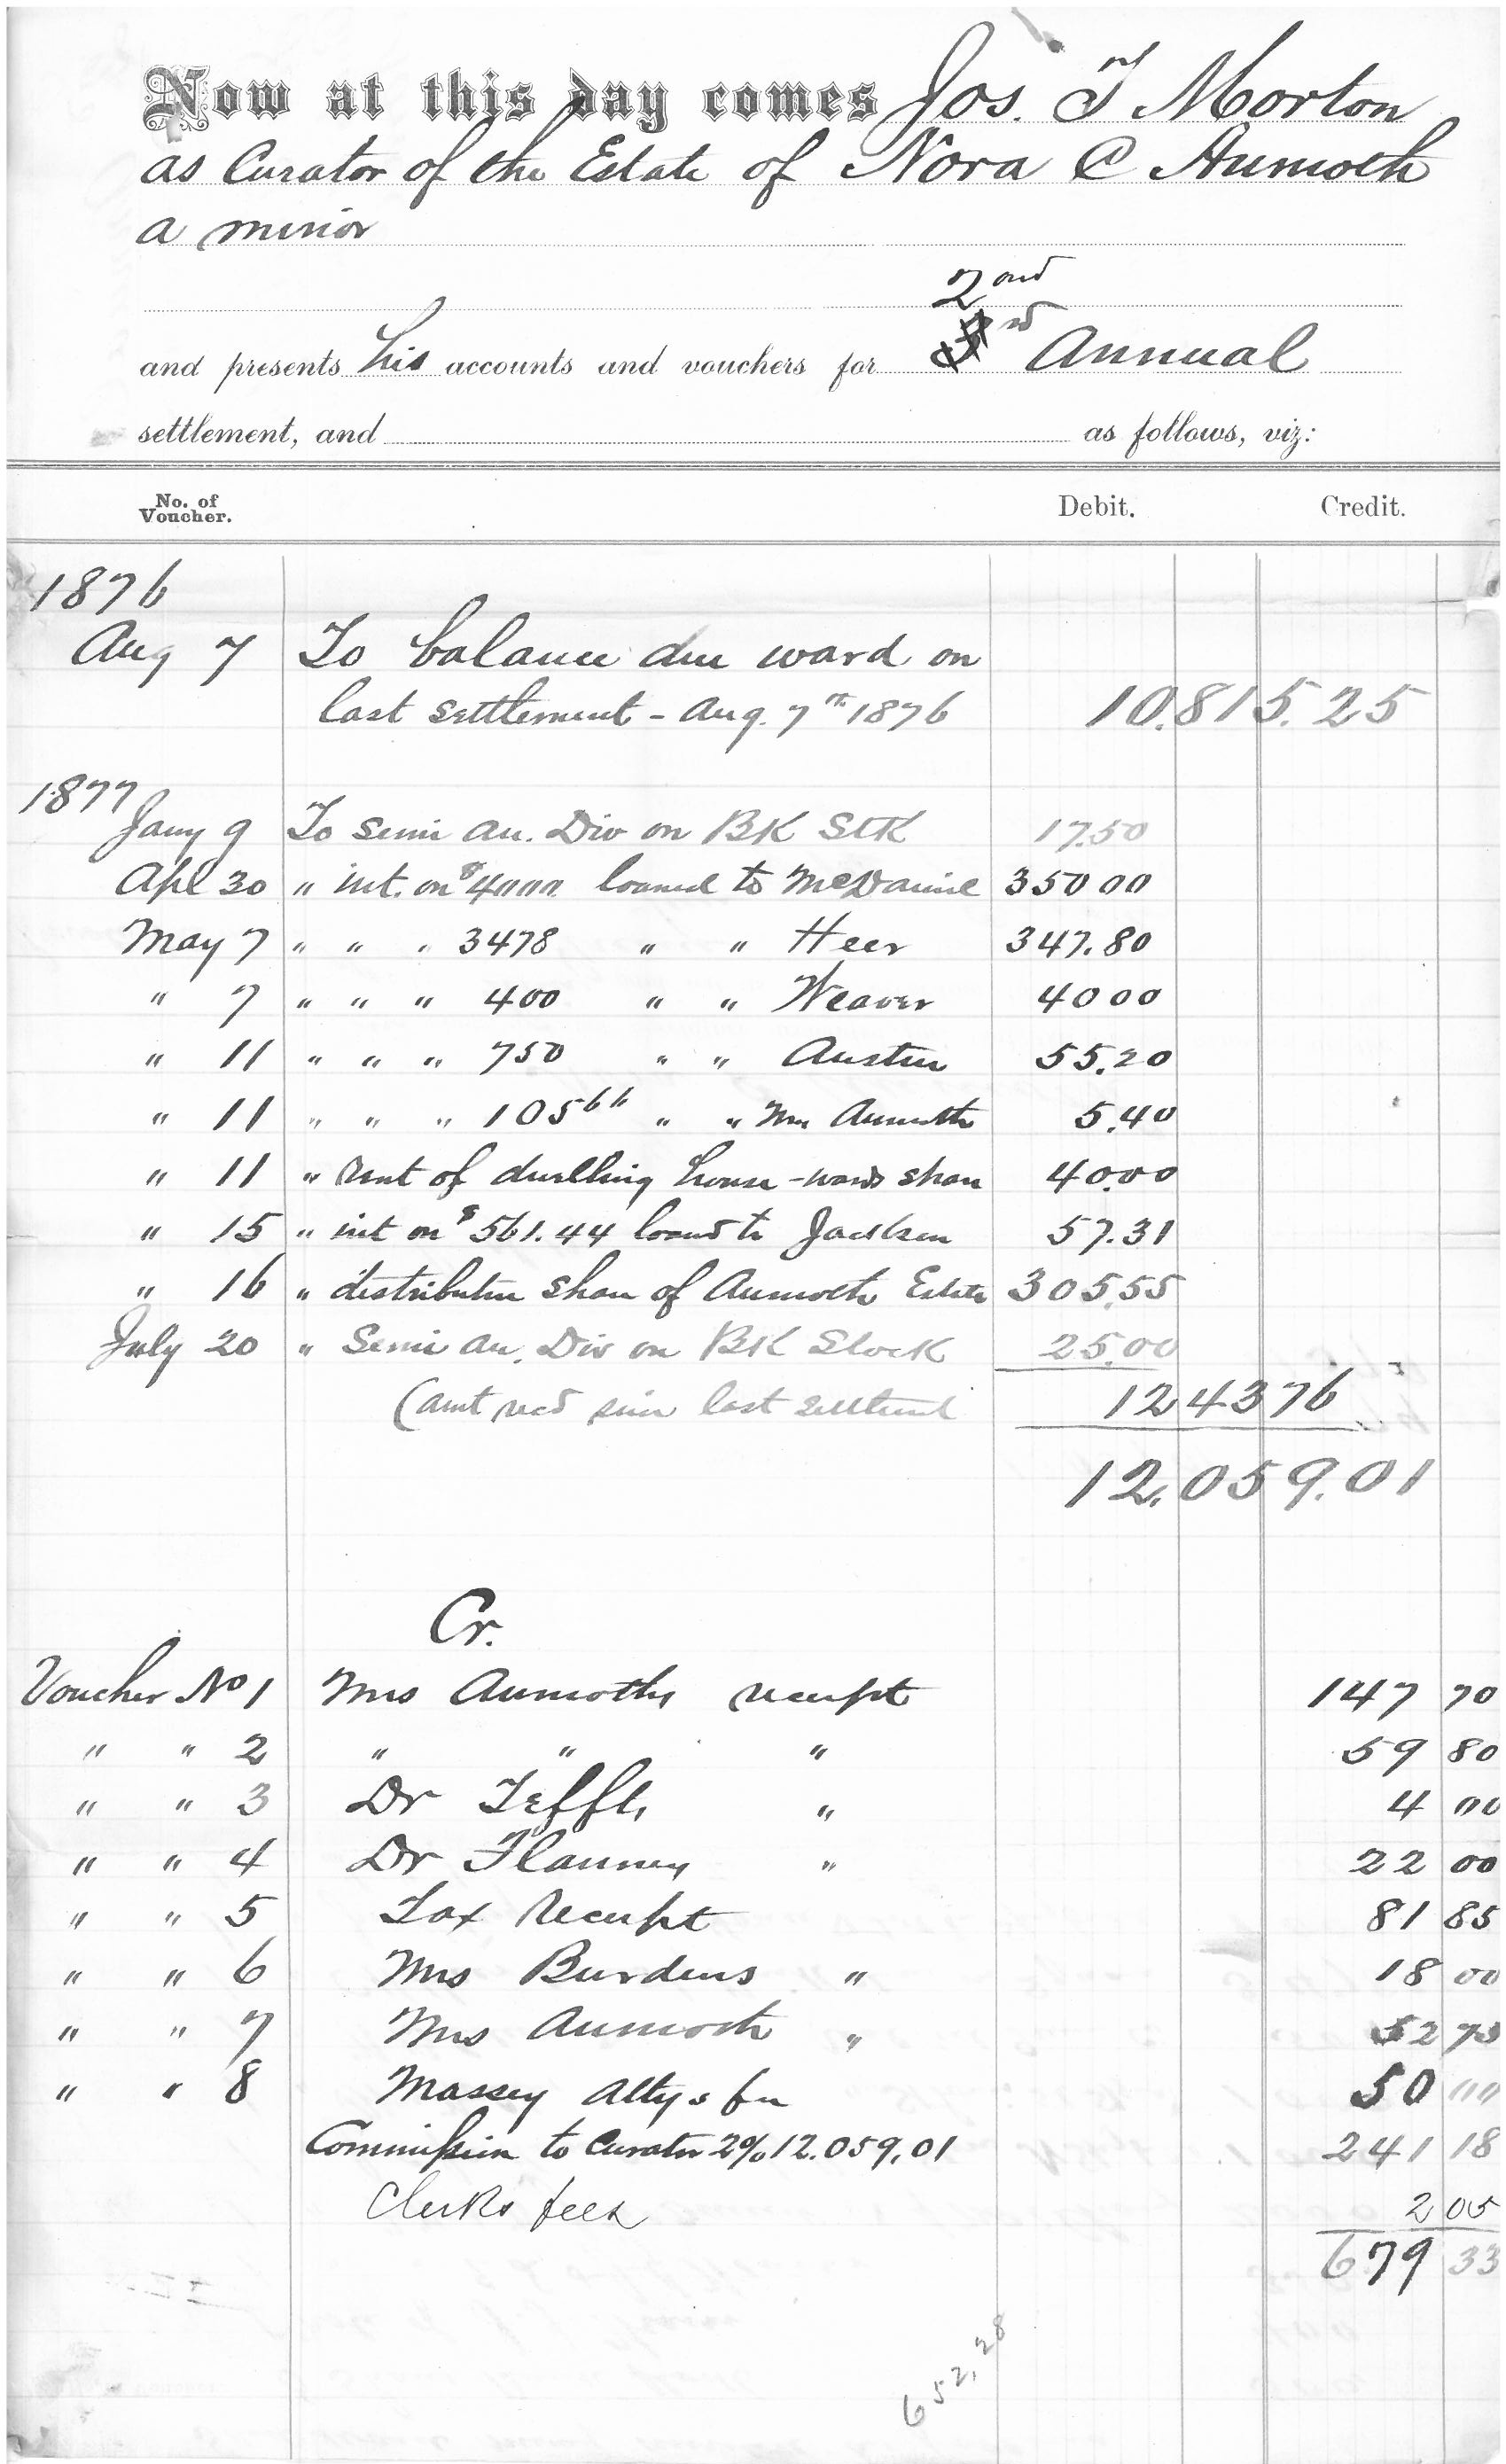 Now at this day comes Jos. T Morton
as Curator of the Estate of Nora C Aumoth
a minor
2nd
and presents his accounts and vouchers for Annual
settlement, and as follows, viz:
No. of Voucher. Debit. Credit.
1876
Aug 7 To balance due ward on
last settlement - Aug. 7th 1876 10.815.25
1877
Jany 9 To Semi an. Div on BK StK 17.50
Apl 30 " int. on $4000 loaned to McDaniel 350 00
May 7 " " " 3478 " " Heer 347.80
" 7 " " " 400 " " Weaver 40 00
" 11 " " " 750 " " Austin 55.20
" 11 " " " 105 66 " " Mrs Aumoth 5.40
" 11 " Rent of dwelling house - wards share 40.00
" 15 " int on $561.44 loaned to Jackson 57.31
" 16 " distributive share of Aumoth Estate 305.55
July 20 " Semi An. Div on BK Stock 25.00
(amt recd since last settlement 1243 76
12.059.01
Cr.
Voucher No 1 Mrs Aumoths receipt 147 70
" " 2 " " " 59 80
" " 3 Dr Tefft, " 4 00
" " 4 Dr Flannery " 22 00
" " 5 Tax Receipt 81 85
" " 6 Mrs Burdens " 18 00
" " 7 Mrs Aumoth " 52 75
" " 8 Massey Attys fee 50 00
Commission to Curator 2% 12.059.01 241 18
Clerks fees 2 05
679 33
652,28